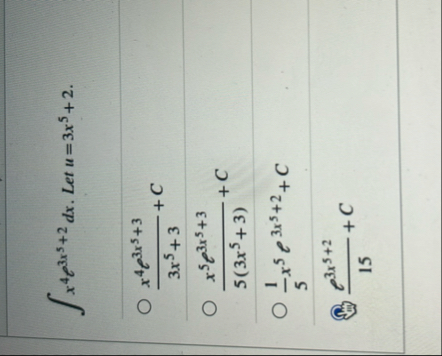 ∫ x⁴e^(3x⁵+2) dx. Let u = 3x⁵ + 2.
x⁴e^(3x⁵+3) / (3x⁵ + 3) + C
x⁵e^(3x⁵+3) / (5(3x⁵ + 3)) + C
1/5 x⁵ e^(3x⁵+2) + C
e^(3x⁵+2) / 15 + C